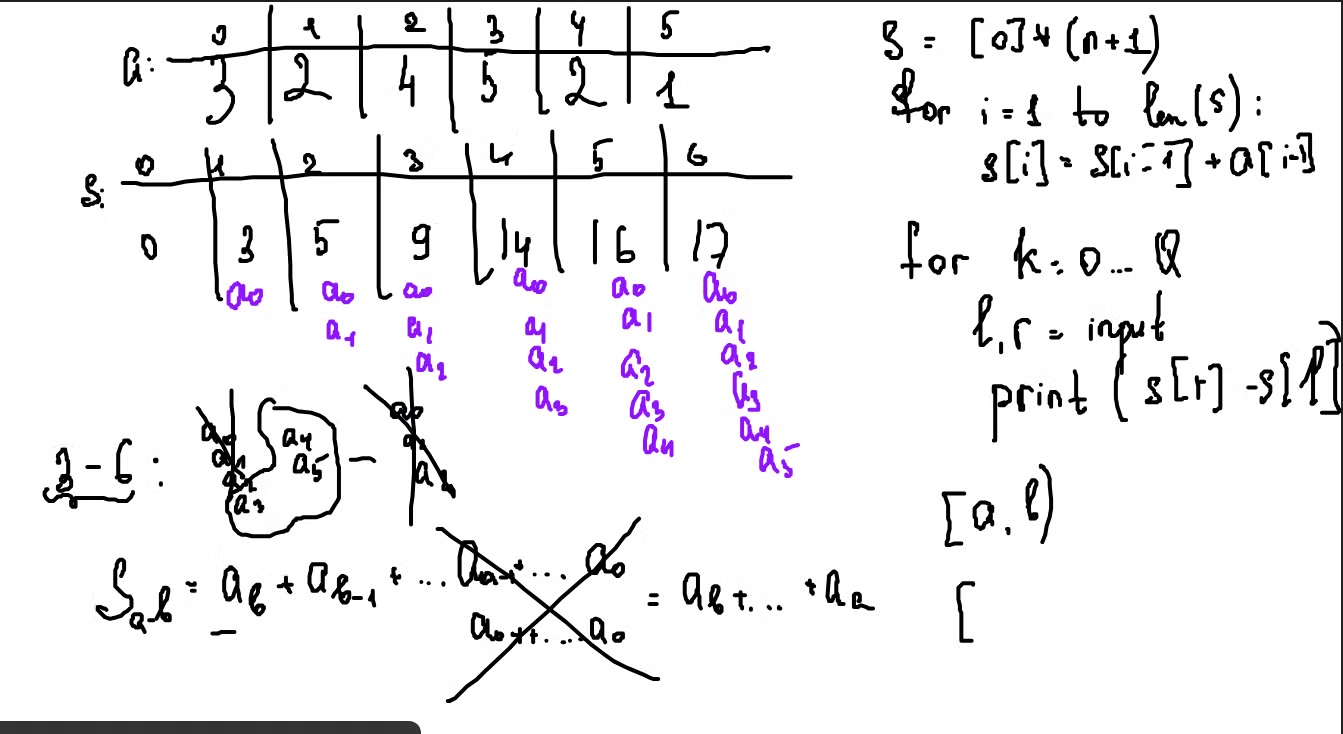 0 1 2 3 4 5
a: 3 2 4 5 2 1
0 1 2 3 4 5 6
S: 0 3 5 9 14 16 17
a0 a0 a0 a0 a0 a0
a1 a1 a1 a1 a1
a2 a2 a2 a2
a3 a3 a3
a4 a4
a5
3 - 6 : a0 a1 a2 a3 a4 a5 - a0 a1 a2
S a-b = a b + a b-1 + ... a a-1 + .... a0 = a b + ... + a a
a0 + + .... a0
S = [0]*(n+1)
for i=1 to len(s):
s[i] = s[i-1] + a[i-1]
for k=0... Q
l,r = input
print (s[r] -s[l]
[a, b)
[